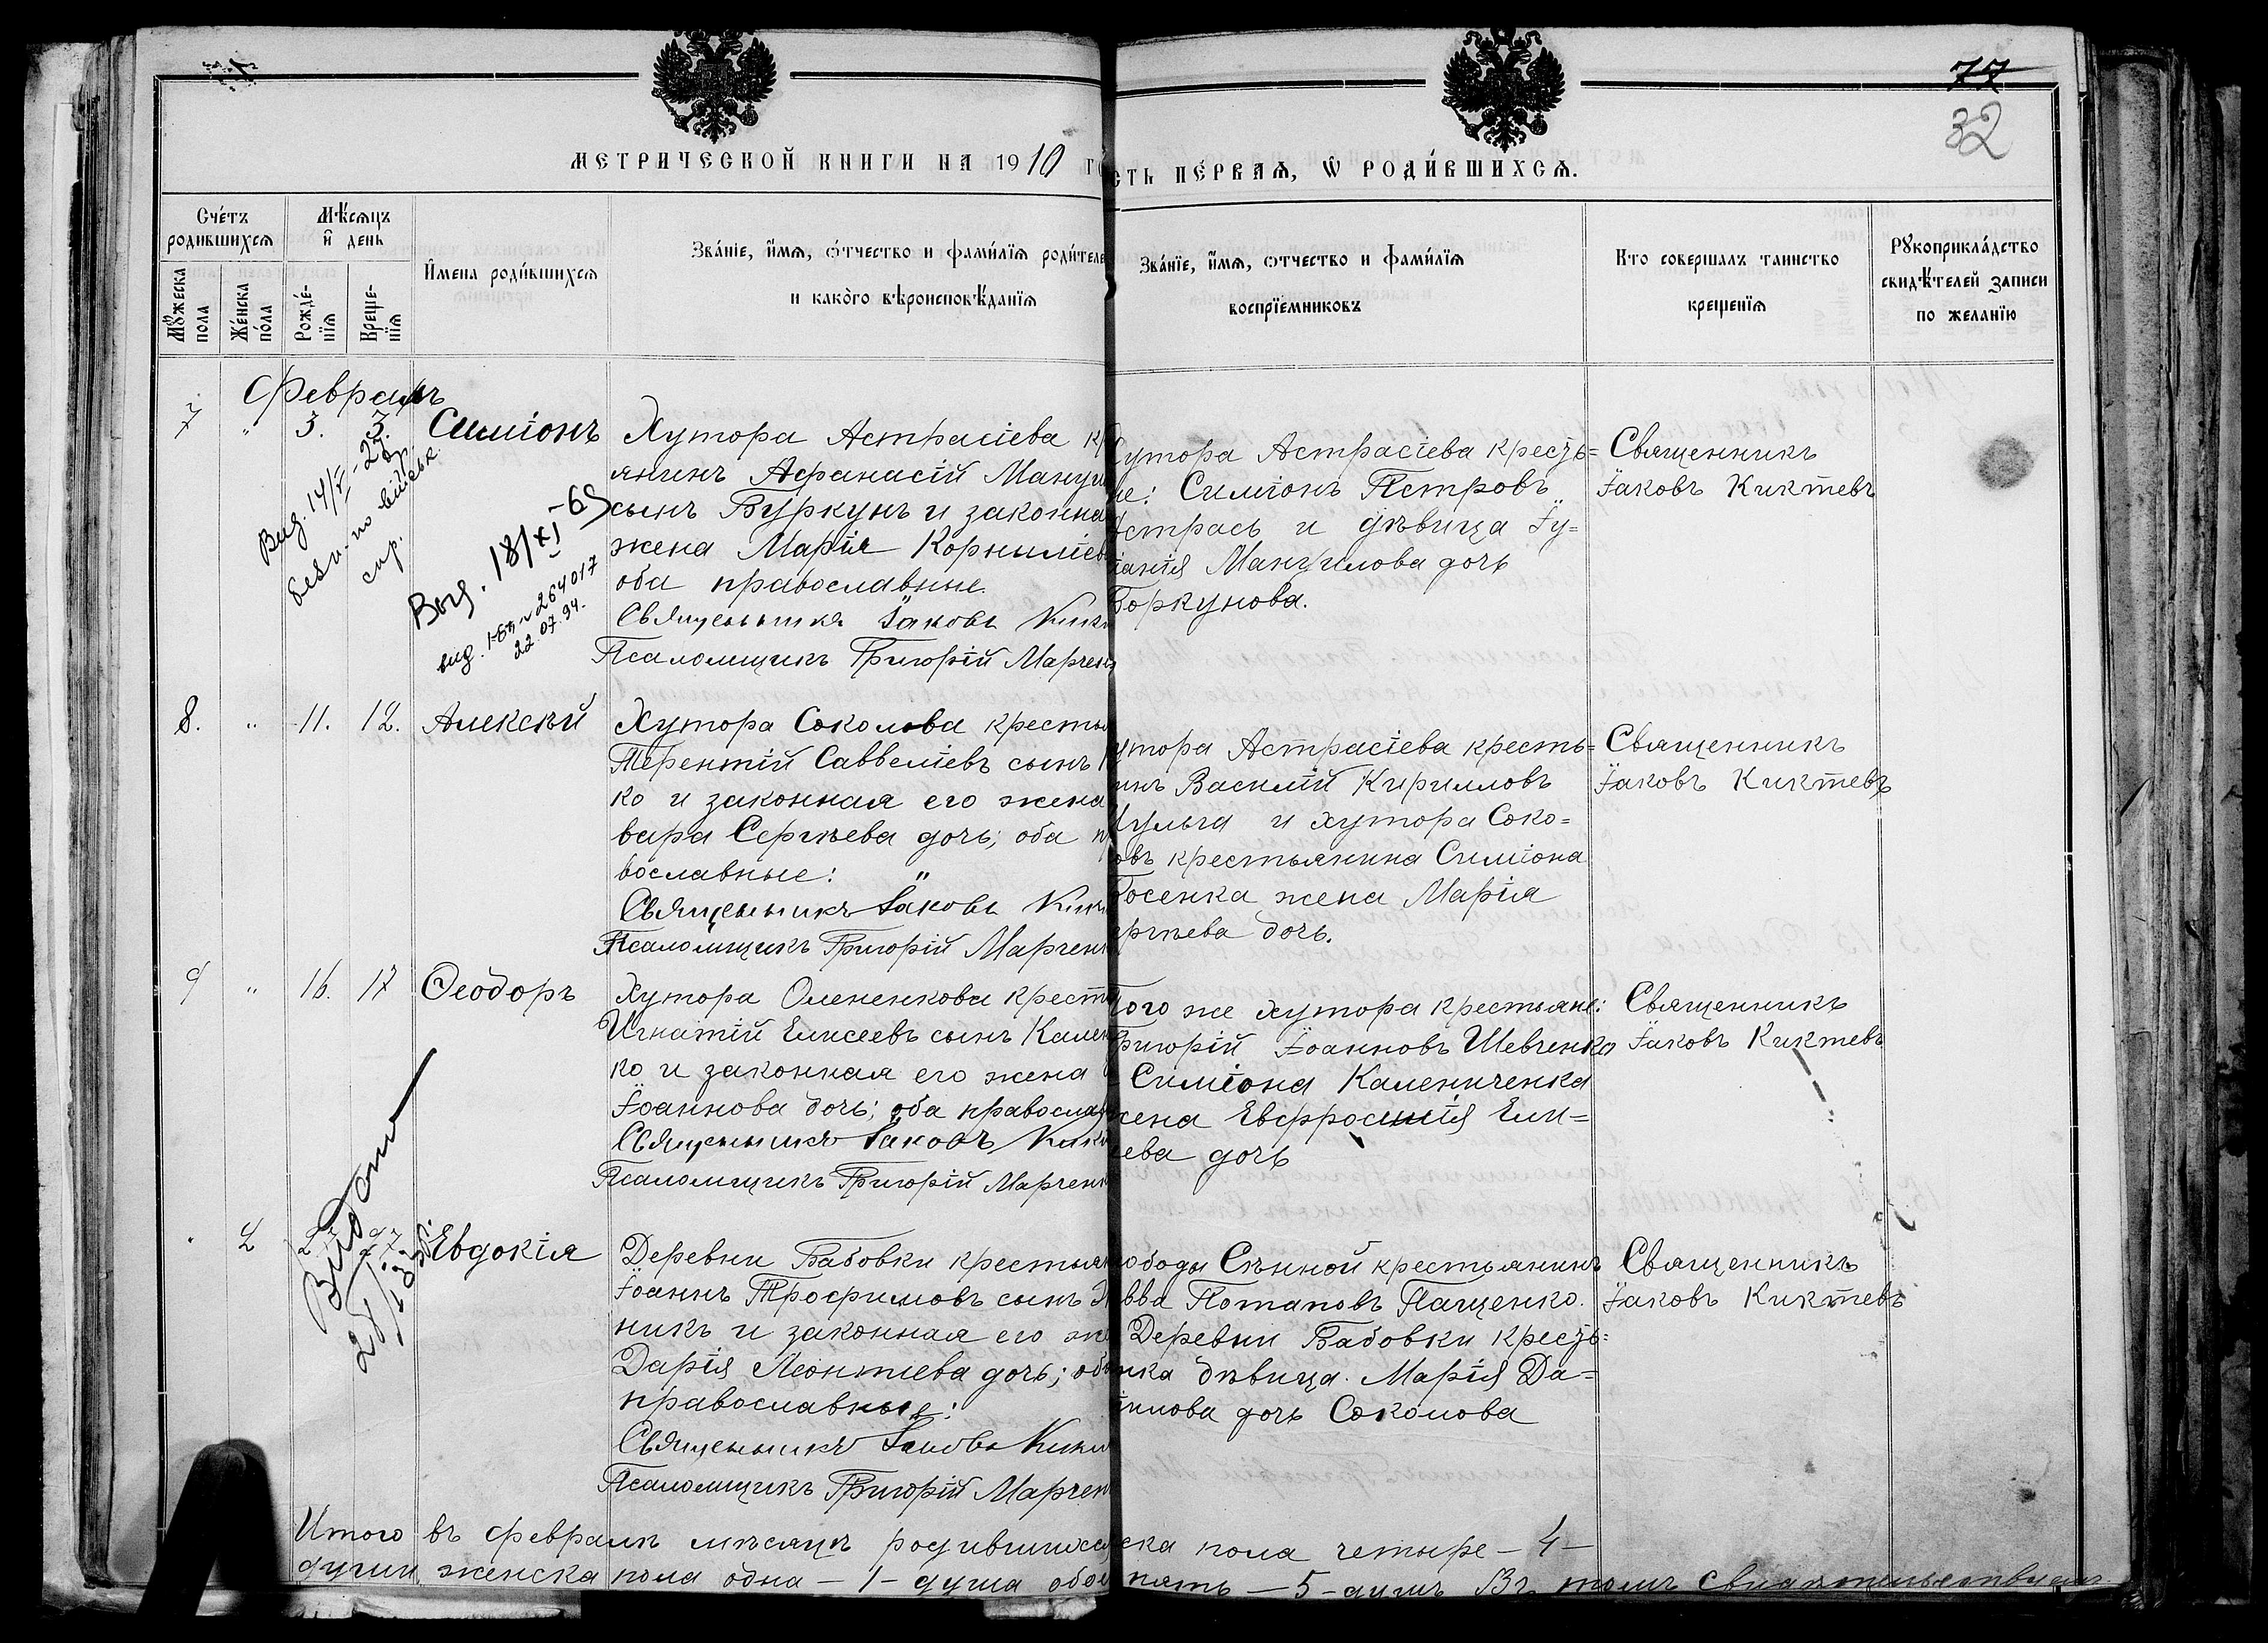 77
32
МЕТРИЧЕСКОЙ КНИГИ НА 1910 ГО
СТЬ ПЕРВАЯ, Ѡ РОДИ́ВШИХСЯ.
Сче́тъ родившихся
Мѣ́сяцъ и҆ день
И҆мена роди́вшихся
Зва́нїе, и҆́мя, ѻ҆́тчество и фами́лїя роди́теле
и како́го вѣроисповѣ́данїя
Мꙋ́жеска пола
Же́нска по́ла
Рожде́-нїя
Креще-нїя
Зва́нїе, и҆́мя, ѻтчество и фами́лїя
воспрїе́мниковъ
Кто совершалъ таинство
крещенїя
Рꙋкоприкла́дство
свидѣ́телей записи
по желанїю
Февраль
7 " 3. 3. Симіонъ
Хутора Астрасіева кр
янинъ Афанасій Мануи
сынъ Буркунъ и законна
жена Марія Корниліев
оба православные.
Священникъ Іаковъ Кик
Псаломщикъ Григорій Марченк
Вид. 14/V-27 р.
безп. по військ.
спр.
Выд. 18/XI-65
вид. І-БЛ № 264017
22.07.94.
Хутора Астрасіева кресть=
не: Симіонъ Петровъ
Астрась и дѣвица Іу=
ліанія Мануилова дочь
Боркунова.
Священникъ
Іаковъ Киктевъ
8. " 11. 12. Алексѣй
Хутора Соколова крестья
Терентій Саввеліевъ сынъ
ко и законная его жена
вара Сергѣева дочь; оба пр
вославные:
Священникъ Іаковъ Кик
Псаломщикъ Григорій Марченк
утора Астрасіева кресть=
инъ Василій Кирилловъ
Шульга и хутора Соко=
овъ крестьянина Симіона
Косенка жена Марія
ергѣева дочь.
Священникъ
Іаковъ Киктевъ
9 " 16. 17 Ѳеодоръ
Хутора Олененкова крест
Игнатій Елисеевъ сынъ Кален
ко и законная его жена
Іоаннова дочь; оба православ
Священникъ Іаковъ Кик
Псаломщикъ Григорій Марченк
Того же хутора крестьяне:
Григорій Іоанновъ Шевченко
Симіона Калениченка
жена Евфросинія Ели=
еева дочь
Священникъ
Іаковъ Киктевъ
2 27 27 Евдокія
Видано
Деревни Бабовки крестьян
Іоаннъ Трофимовъ сынъ
никъ и законная его же
Дарія Леонтіева дочь; оба
православные:
Священникъ Іаковъ Кик
Псаломщикъ Григорій Марчен
ободы Сѣнной крестьянинъ
авва Потаповъ Пащенко.
Деревни Бабовки кресть=
янка дѣвица Марія Да=
ніилова дочь Соколова
Священникъ
Іаковъ Киктевъ
Итого въ февралѣ мѣсяцѣ родившихся
ска пола четыре - 4 -
души, женска пола одна - 1 - душа обое
пять - 5 - душъ Въ томъ свидѣтельствуемъ